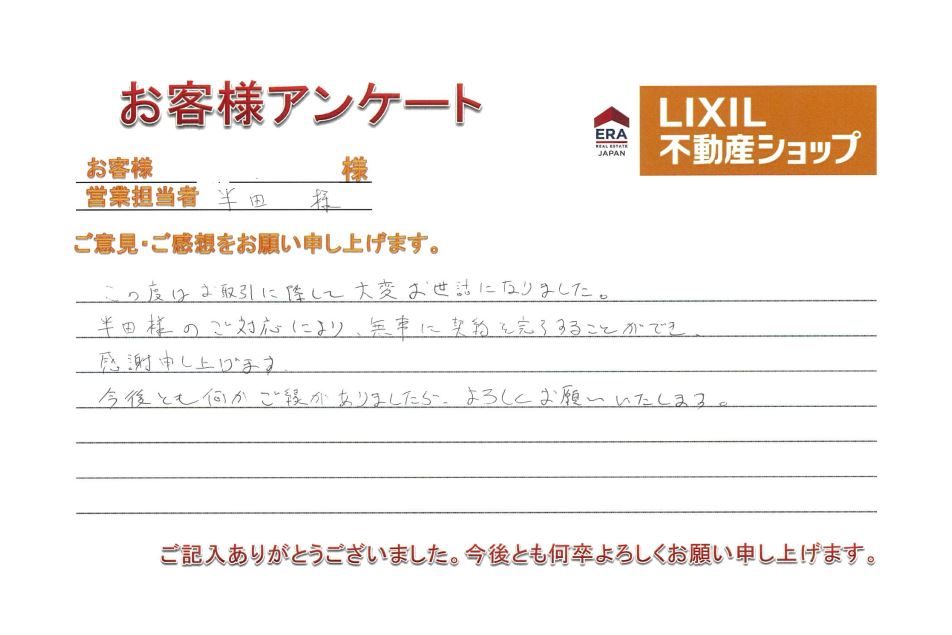 お客様アンケート
ERA
REAL ESTATE
JAPAN
LIXIL
不動産ショップ
お客様 様
営業担当者 半田 様
ご意見・ご感想をお願い申し上げます。
この度はお取引に際して大変お世話になりました。
半田様のご対応により、無事に契約を完了することができ、
感謝申し上げます。
今後とも何かご縁がありましたら、よろしくお願いいたします。
ご記入ありがとうございました。今後とも何卒よろしくお願い申し上げます。